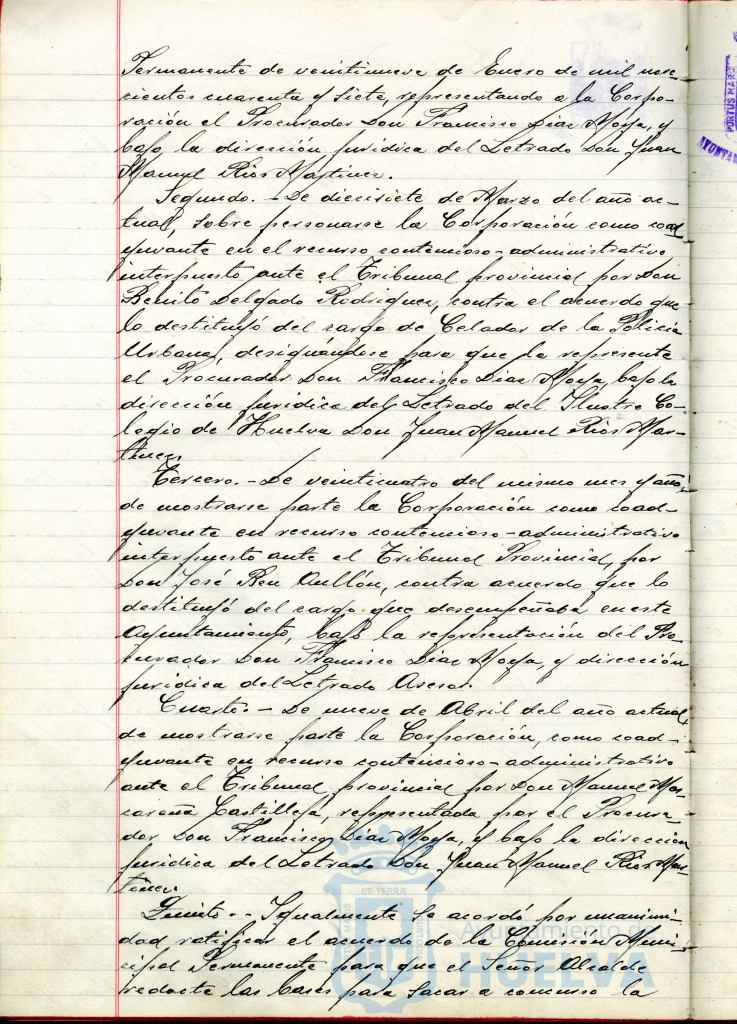 Permanente de veintinueve de Enero de mil nove-
cientos cuarenta y siete, representando a la Corpo-
ración el Procurador Don Francisco Díaz Moya, y
bajo la dirección jurídica del Letrado Don Juan
Manuel Ríos Martínez.
Segundo. - De diecisiete de Marzo del año ac-
tual, sobre personarse la Corporación como coad-
yuvante en el recurso contencioso-administrativo
interpuesto ante el Tribunal provincial por Don
Benito Delgado Rodríguez, contra el acuerdo que
lo destituyó del cargo de Celador de la Policía
Urbana, designándose para que la represente
el Procurador Don Francisco Díaz Moya, bajo la
dirección jurídica del Letrado del Ilustre Co-
legio de Huelva Don Juan Manuel Ríos Mar-
tínez.
Tercero. - De veinticuatro del mismo mes y año,
de mostrarse parte la Corporación como coad-
yuvante en recurso contencioso-administrativo
interpuesto ante el Tribunal Provincial, por
Don José Reu Aullón, contra acuerdo que lo
destituyó del cargo que desempeñaba en este
Ayuntamiento, bajo la representación del Pro-
curador Don Francisco Díaz Moya, y dirección
jurídica del Letrado Asesor.
Cuarto. - De nueve de Abril del año actual,
de mostrarse parte la Corporación, como coad-
yuvante en recurso contencioso-administrativo
ante el Tribunal provincial por Don Manuel
Castilleja, representada por el Procura-
dor Don Francisco Díaz Moya, y bajo la dirección
jurídica del Letrado Don Juan Manuel Ríos Mar-
tínez.
Quinto. - Igualmente se acordó por unanimi-
dad ratificar el acuerdo de la Comisión Muni-
cipal Permanente para que el Señor Alcalde
redacte las bases para sacar a concurso la
PORTUS MARIS
AYUNTA
ET TERRÆ
Ayuntamiento de
HUELVA